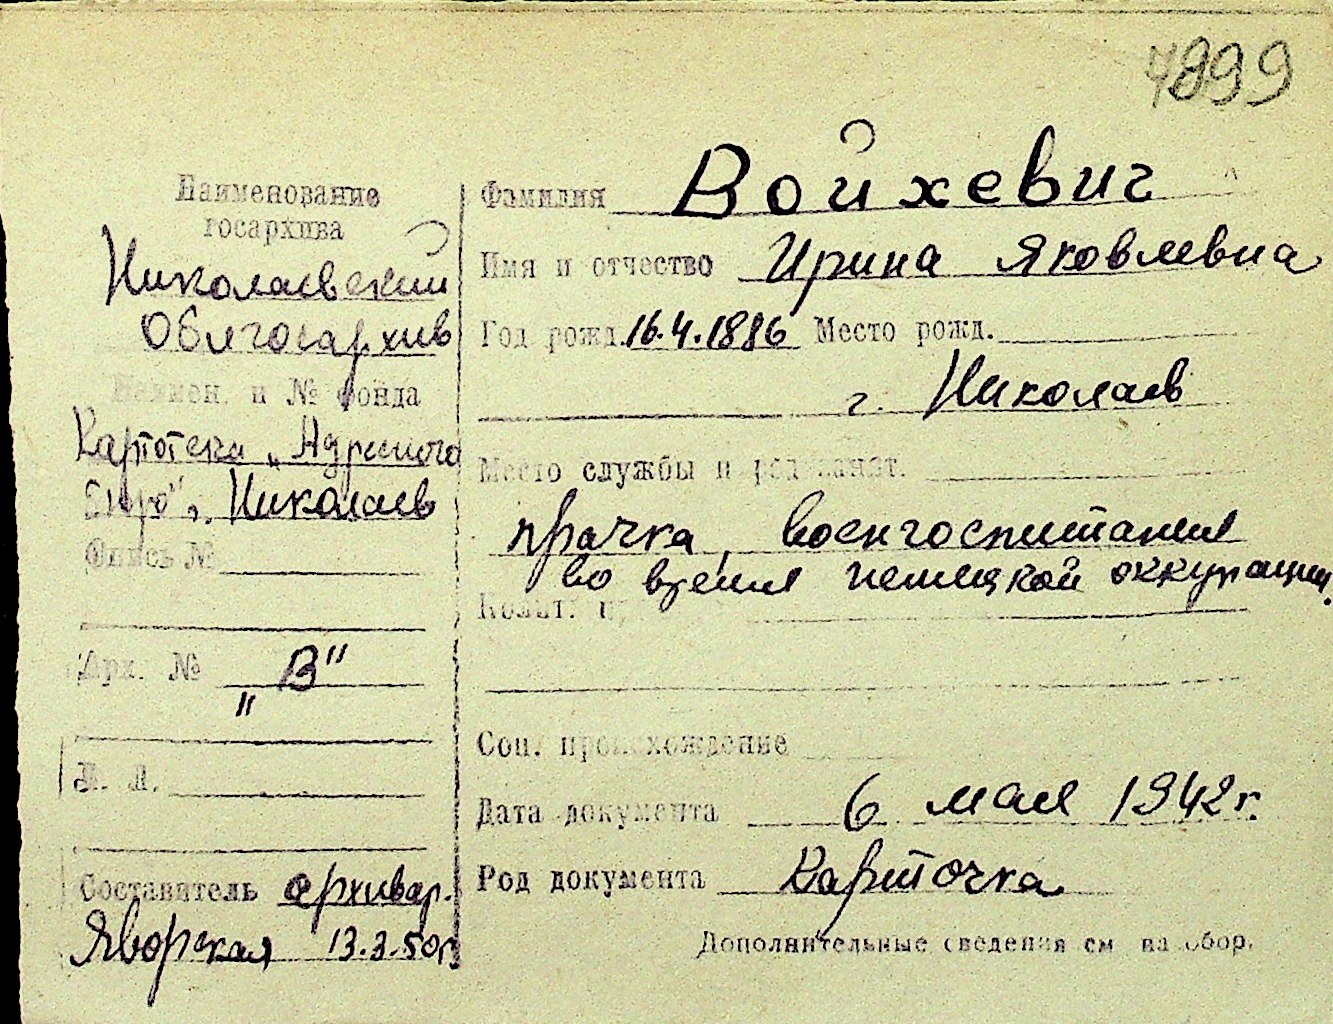 4899
Наименование
госархива
Николаевский
Облгосархив
Наимен. и № фонда
Картотека „Адресного
Бюро" г. Николаев
Опись №
Арх. № „В"
Л. Л.
Составитель архивар.
Яворская 13.3.50г.
Фамилия Войхевич
Имя и отчество Ирина Яковлевна
Год рожд. 16.4.1886 Место рожд.
г. Николаев
Место службы и род занят.
прачка, военгоспиталя
во время немецкой оккупации.
Соц. происхождение
Дата документа 6 мая 1942г.
Род документа Карточка
Дополнительные сведения см на обор.